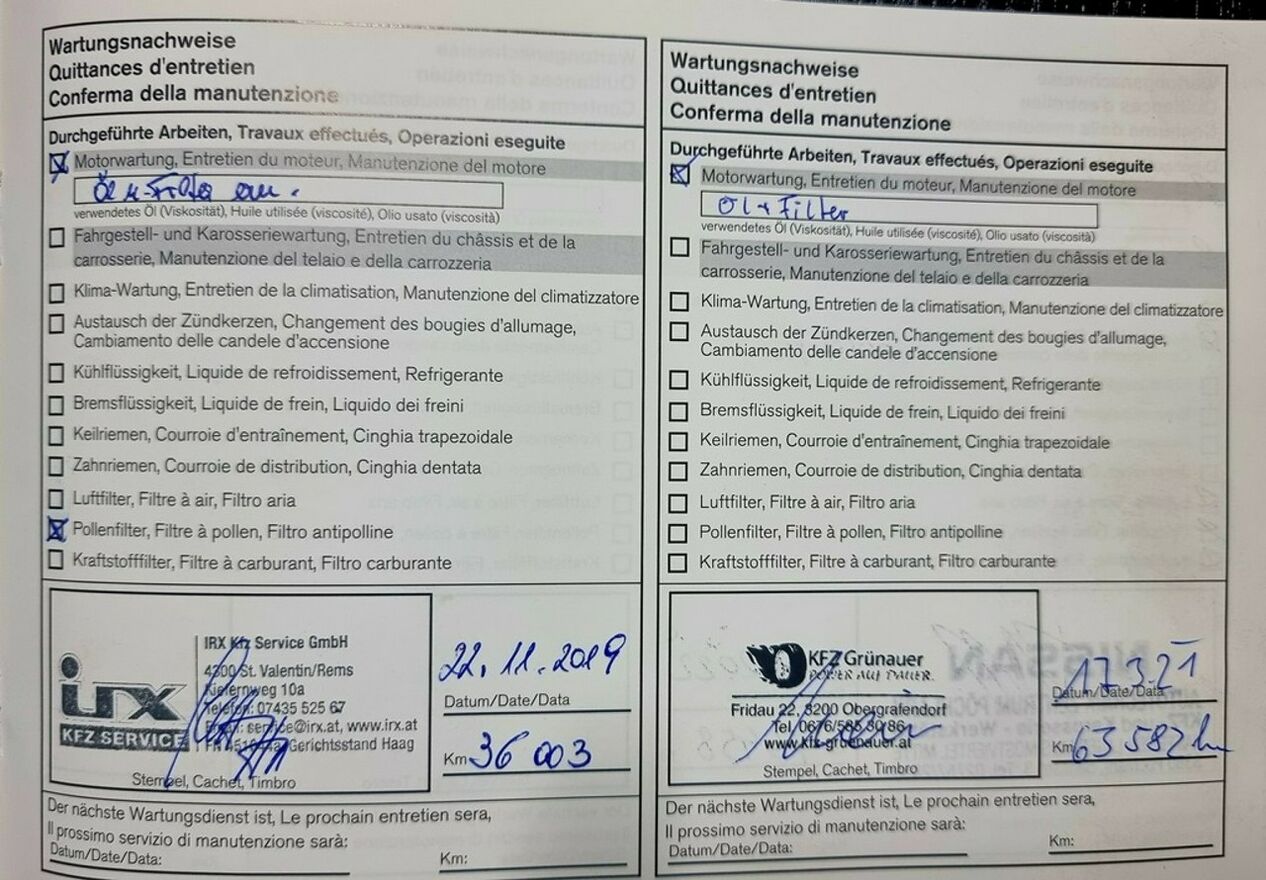 Wartungsnachweise
Quittances d'entretien
Conferma della manutenzione
Durchgeführte Arbeiten, Travaux effectués, Operazioni eseguite
Motorwartung, Entretien du moteur, Manutenzione del motore
Öl u. Filter
verwendetes Öl (Viskosität), Huile utilisée (viscosité), Olio usato (viscosità)
Fahrgestell- und Karosseriewartung, Entretien du châssis et de la
carrosserie, Manutenzione del telaio e della carrozzeria
Klima-Wartung, Entretien de la climatisation, Manutenzione del climatizzatore
Austausch der Zündkerzen, Changement des bougies d'allumage,
Cambiamento delle candele d'accensione
Kühlflüssigkeit, Liquide de refroidissement, Refrigerante
Bremsflüssigkeit, Liquide de frein, Liquido dei freini
Keilriemen, Courroie d'entraînement, Cinghia trapezoidale
Zahnriemen, Courroie de distribution, Cinghia dentata
Luftfilter, Filtre à air, Filtro aria
Pollenfilter, Filtre à pollen, Filtro antipolline
Kraftstofffilter, Filtre à carburant, Filtro carburante
irx
KFZ SERVICE
IRX Kfz Service GmbH
4300 St. Valentin/Rems
Kiefernweg 10a
Telefon: 07435 525 67
Email: service@irx.at, www.irx.at
Gerichtsstand Haag
Stempel, Cachet, Timbro
22.11.2019
Datum/Date/Data
Km 36 003
Der nächste Wartungsdienst ist, Le prochain entretien sera,
Il prossimo servizio di manutenzione sarà:
Datum/Date/Data:
Km:
Wartungsnachweise
Quittances d'entretien
Conferma della manutenzione
Durchgeführte Arbeiten, Travaux effectués, Operazioni eseguite
Motorwartung, Entretien du moteur, Manutenzione del motore
Öl + Filter
verwendetes Öl (Viskosität), Huile utilisée (viscosité), Olio usato (viscosità)
Fahrgestell- und Karosseriewartung, Entretien du châssis et de la
carrosserie, Manutenzione del telaio e della carrozzeria
Klima-Wartung, Entretien de la climatisation, Manutenzione del climatizzatore
Austausch der Zündkerzen, Changement des bougies d'allumage,
Cambiamento delle candele d'accensione
Kühlflüssigkeit, Liquide de refroidissement, Refrigerante
Bremsflüssigkeit, Liquide de frein, Liquido dei freini
Keilriemen, Courroie d'entraînement, Cinghia trapezoidale
Zahnriemen, Courroie de distribution, Cinghia dentata
Luftfilter, Filtre à air, Filtro aria
Pollenfilter, Filtre à pollen, Filtro antipolline
Kraftstofffilter, Filtre à carburant, Filtro carburante
KFZ Grünauer
POWER AUF DAUER.
Fridau 22, 3200 Obergrafendorf
Tel: 0676/585 30 86
www.kfz-gruenauer.at
Stempel, Cachet, Timbro
17.3.21
Datum/Date/Data
Km 63 582 km
Der nächste Wartungsdienst ist, Le prochain entretien sera,
Il prossimo servizio di manutenzione sarà:
Datum/Date/Data:
Km: